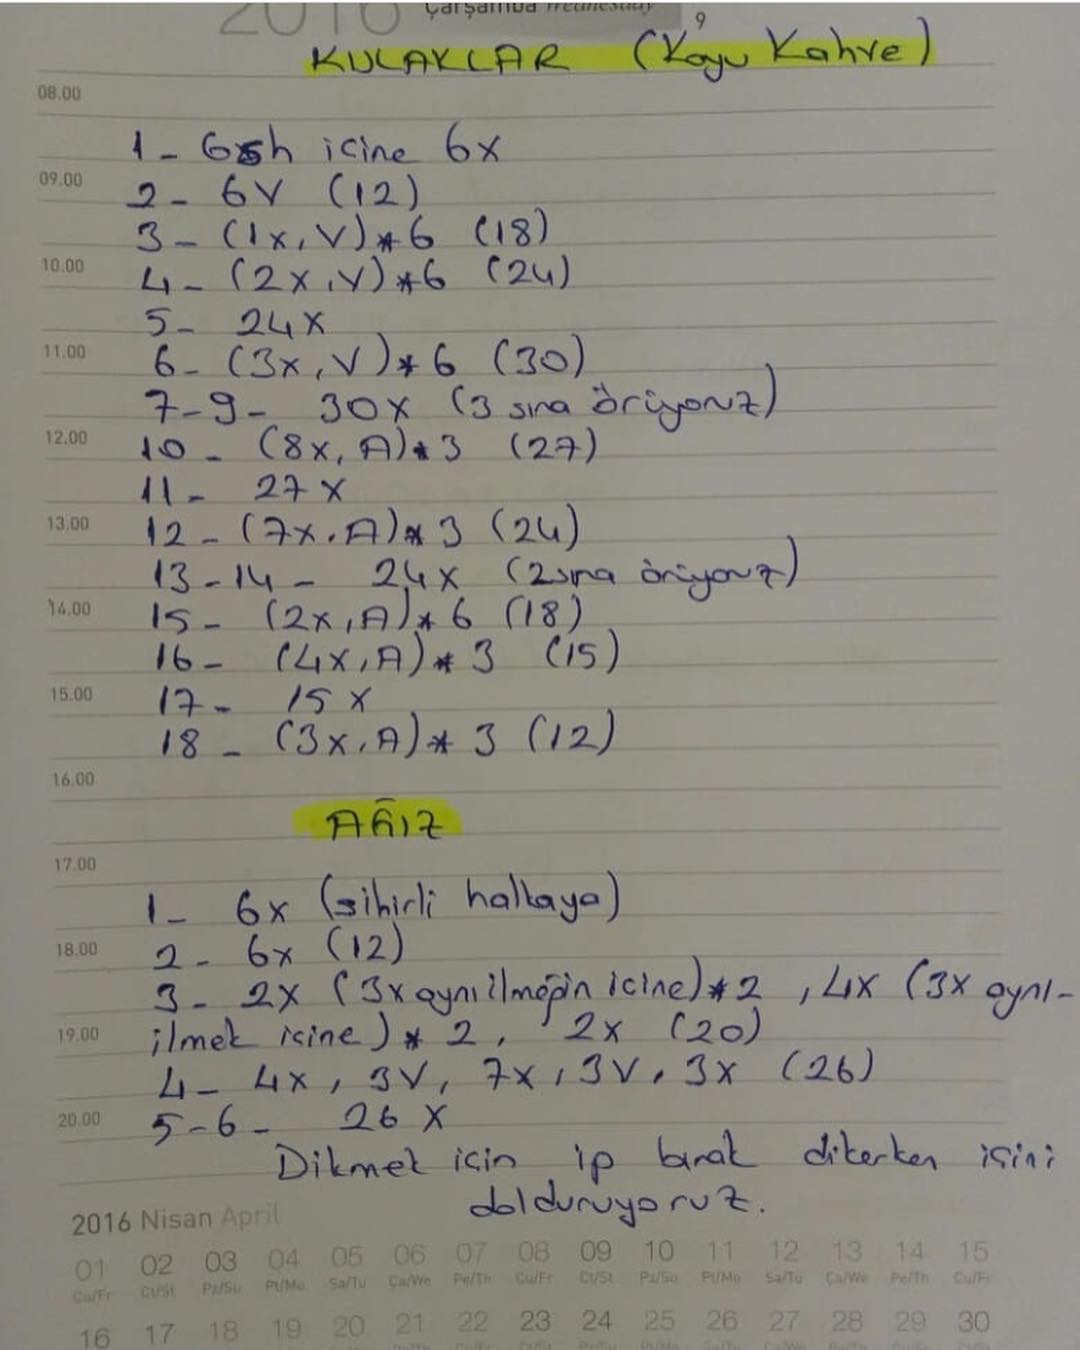 2016 Çarşamba Wednesday
9
KULAKLAR (Koyu Kahve)
08.00
1- 6sh icine 6x
09.00
2- 6V (12)
3- (1x, V)*6 (18)
10.00
4- (2x, V)*6 (24)
5- 24x
11.00
6- (3x, V)*6 (30)
7-9- 30x (3 sıra örüyoruz)
12.00
10- (8x, A)*3 (27)
11- 27x
13.00
12- (7x, A)*3 (24)
13-14- 24x (2 sıra örüyoruz)
14.00
15- (2x, A)*6 (18)
16- (4x, A)*3 (15)
15.00
17- 15x
18- (3x, A)*3 (12)
16.00
AĞIZ
17.00
1- 6x (sihirli halkaya)
18.00
2- 6x (12)
3- 2x (3x aynı ilmeğin icine)*2, 4x (3x aynı-
19.00
ilmek icine)*2, 2x (20)
4- 4x, 3V, 7x, 3V, 3x (26)
20.00
5-6- 26x
Dikmek icin ip bırak dikerken içini
dolduruyoruz.
2016 Nisan April
01 02 03 04 05 06 07 08 09 10 11 12 13 14 15
Cu/Fr Ct/St Pz/Su Pt/Mo Sa/Tu Ça/We Pe/Th Cu/Fr Ct/St Pz/Su Pt/Mo Sa/Tu Ça/We Pe/Th Cu/Fr
16 17 18 19 20 21 22 23 24 25 26 27 28 29 30